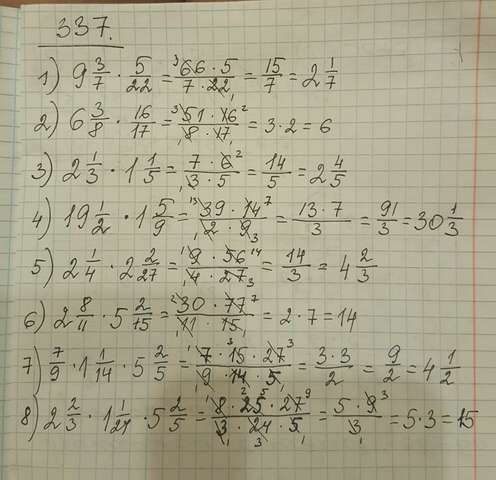 337.
1) 9 3/7 · 5/22 = (³66 · 5)/(7 · 22₁) = 15/7 = 2 1/7
2) 6 3/8 · 16/17 = (³51 · 16²)/(₁8 · 17₁) = 3 · 2 = 6
3) 2 1/3 · 1 1/5 = (7 · 6²)/(₁3 · 5) = 14/5 = 2 4/5
4) 19 1/2 · 1 5/9 = (¹³39 · 14⁷)/(₁2 · 9₃) = (13 · 7)/3 = 91/3 = 30 1/3
5) 2 1/4 · 2 2/27 = (¹9 · 56¹⁴)/(₁4 · 27₃) = 14/3 = 4 2/3
6) 2 8/11 · 5 2/15 = (²30 · 77⁷)/(₁11 · 15₁) = 2 · 7 = 14
7) 7/9 · 1 1/14 · 5 2/5 = (¹7 · ³15 · 27³)/(₁9 · 14₂ · 5₁) = (3 · 3)/2 = 9/2 = 4 1/2
8) 2 2/3 · 1 1/24 · 5 2/5 = (¹8 · 25⁵ · 27⁹)/(₁3 · 24₃ · 5₁) = (5 · 9³)/3₁ = 5 · 3 = 15